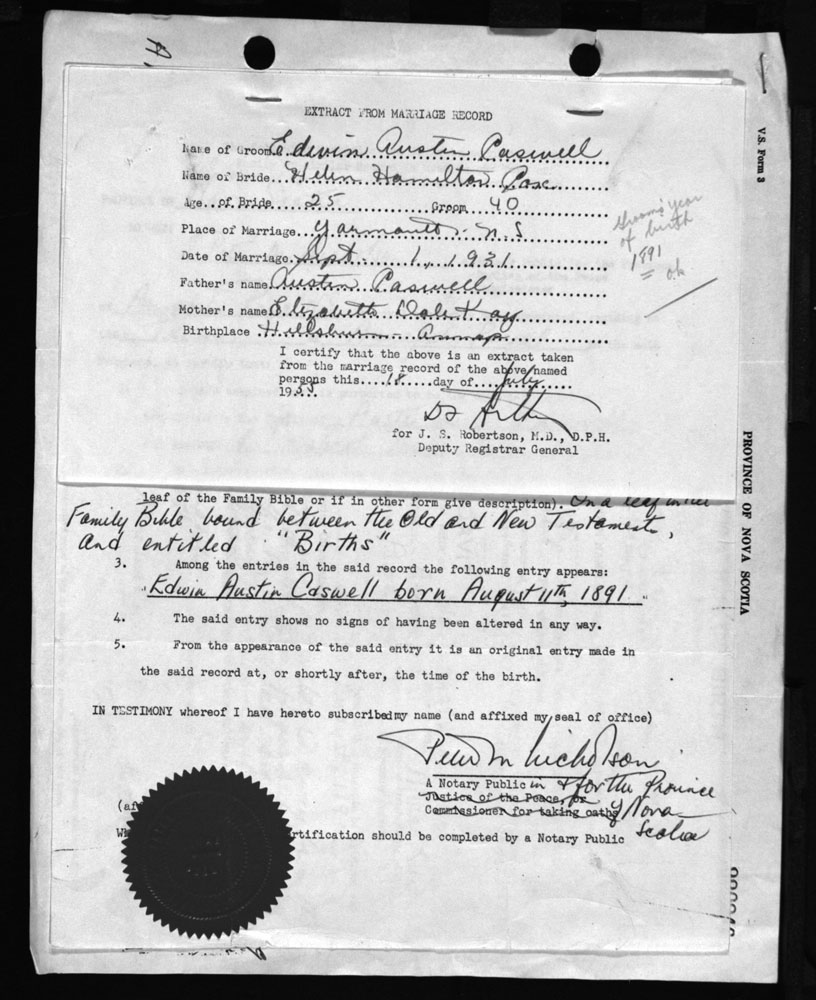 EXTRACT FROM MARRIAGE RECORD
Name of Groom Edwin Austin Caswell
Name of Bride Helen Hamilton
Age of Bride 25 Groom 40
Place of Marriage Yarmouth - N.S
Date of Marriage Sept. 1, 1931
Father's name Austin Caswell
Mother's name Elizabeth Dale Kay
Birthplace Hillsburn - Annap.
Groom's year of birth 1891 = ok
I certify that the above is an extract taken
from the marriage record of the above named
persons this....18.....day of....July......
19
for J. S. Robertson, M.D., D.P.H.
Deputy Registrar General
V.S. Form 3
PROVINCE OF NOVA SCOTIA
leaf of the Family Bible or if in other form give description). On a leaf in the
Family Bible bound between the Old and New Testaments,
and entitled "Births"
3. Among the entries in the said record the following entry appears:
"Edwin Austin Caswell born August 11th, 1891 "
4. The said entry shows no signs of having been altered in any way.
5. From the appearance of the said entry it is an original entry made in
the said record at, or shortly after, the time of the birth.
IN TESTIMONY whereof I have hereto subscribed my name (and affixed my seal of office)
Peter M Nicholson
A Notary Public in & for the Province
Justice of the Peace, or
Commissioner for taking oaths of Nova
Scotia
(af
Wh rtification should be completed by a Notary Public